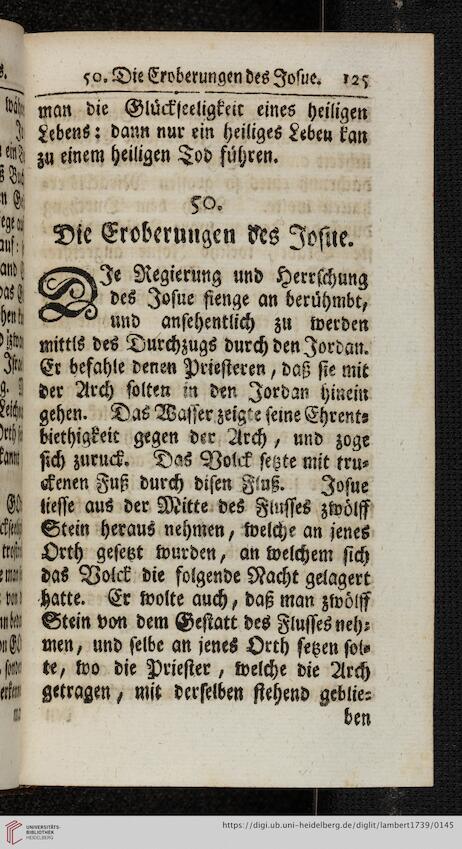 50. Die Eroberungen des Josue. 125
man die Glückseeligkeit eines heiligen
Lebens: dann nur ein heiliges Leben kan
zu einem heiligen Tod führen.
50.
Die Eroberungen des Josue.
DIe Regierung und Herrschung
des Josue fienge an berühmbt,
und ansehentlich zu werden
mittls des Durchzugs durch den Jordan.
Er befahle denen Priesteren, daß sie mit
der Arch solten in den Jordan hinein
gehen. Das Wasser zeigte seine Ehrent-
biethigkeit gegen der Arch, und zoge
sich zuruck. Das Volck setzte mit tru-
ckenen Fuß durch disen Fluß. Josue
liesse aus der Mitte des Flusses zwölff
Stein heraus nehmen, welche an jenes
Orth gesetzt wurden, an welchem sich
das Volck die folgende Nacht gelagert
hatte. Er wolte auch, daß man zwölff
Stein von dem Gestatt des Flusses neh-
men, und selbe an jenes Orth setzen sol-
te, wo die Priester, welche die Arch
getragen, mit derselben stehend geblie-
ben
UNIVERSITÄTS-
BIBLIOTHEK
HEIDELBERG
https://digi.ub.uni-heidelberg.de/diglit/lambert1739/0145